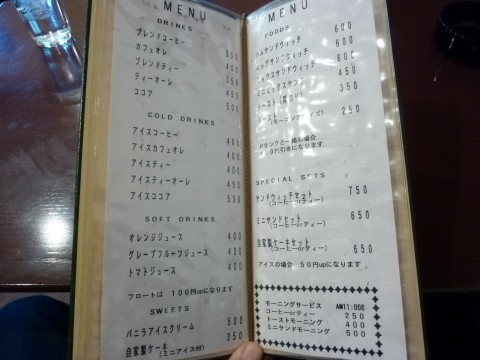 MENU
DRINKS
ブレンドコーヒー 350
カフェオレ 400
ブレンドティー 400
ティーオーレ 450
ココア 500
COLD DRINKS
アイスコーヒー 400
アイスカフェオレ 400
アイスティー 400
アイスティーオーレ 450
アイスココア 500
SOFT DRINKS
オレンジジュース 400
グレープフルーツジュース 400
トマトジュース 400
フロートは 100円upになります
SWEETS
バニラアイスクリーム 500
自家製ケーキ (ミニアイス付) 350
MENU
FOODS
ハムサンドウィッチ 600
エッグサンドウィッチ 600
ミックスサンドウィッチ 600
ミニミックスサンド 450
トースト 350
トースト (モーニングサイズ) 250
ドリンクと一緒の場合
円引きになります
SPECIAL SETS
サンドウィッチセット 750
(コーヒーorティー)
ミニサンドセット 650
(コーヒーorティー)
自家製ケーキセット 650
(コーヒーorティー)
アイスの場合、50円upになります
モーニングサービス AM11:00迄
コーヒーorティー 250
トーストモーニング 400
ミニサンドモーニング 500